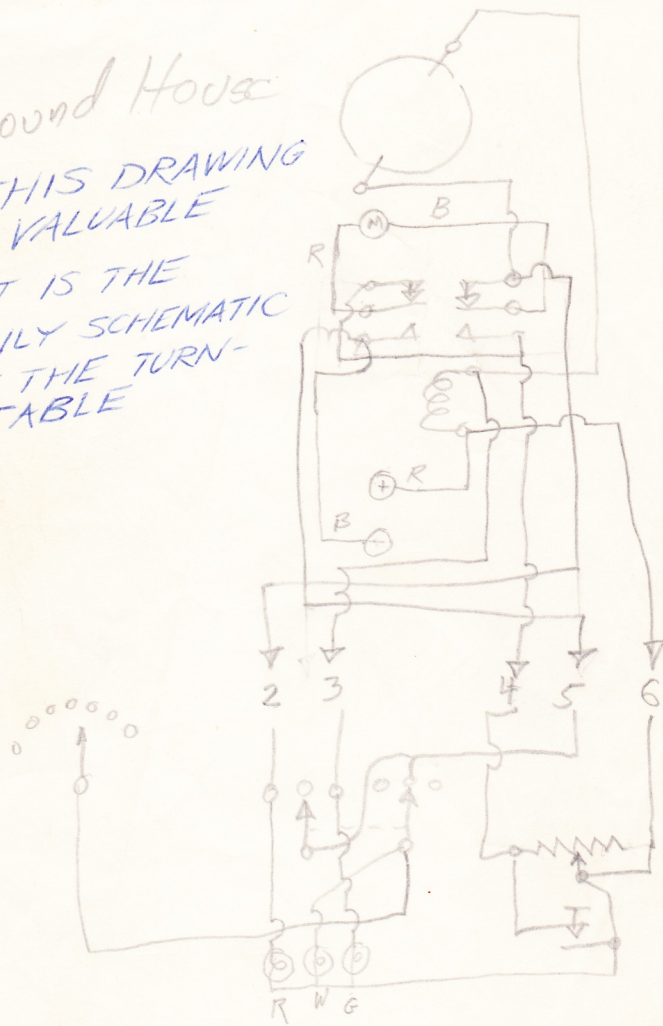 ound House
THIS DRAWING
VALUABLE
T IS THE
SCHEMATIC
THE TURN-
TABLE
B
M
R
+ R
B
-
2 3 4 5 6
R W G